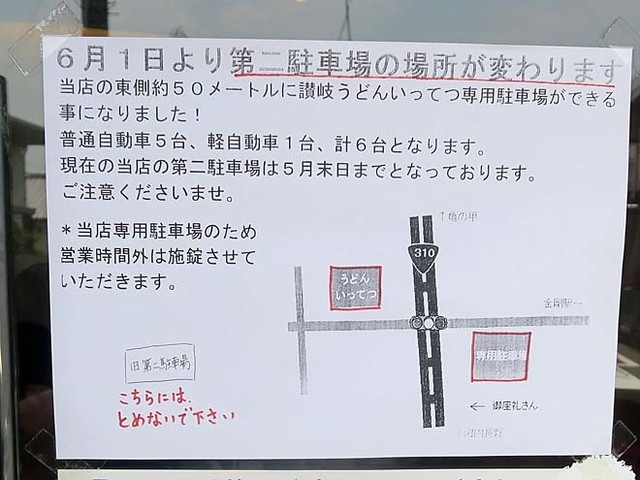 6月1日より第二駐車場の場所が変わります
当店の東側約50メートルに讃岐うどんいってつ専用駐車場ができる
事になりました！
普通自動車5台、軽自動車1台、計6台となります。
現在の当店の第二駐車場は5月末日までとなっております。
ご注意くださいませ。
＊当店専用駐車場のため
営業時間外は施錠させて
いただきます。
310
うどん
いってつ
金剛駅→
専用駐車場
旧第二駐車場
← 御座礼さん
こちらには、
とめないで下さい